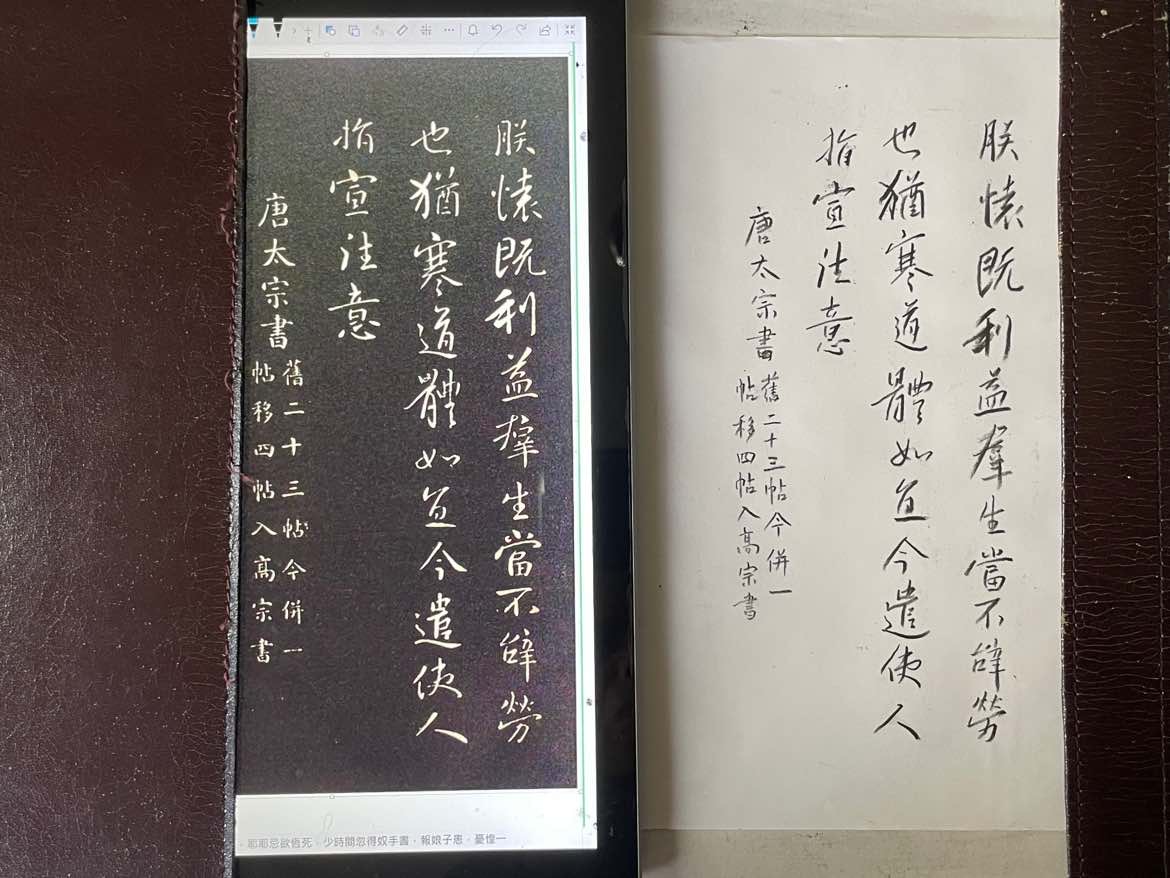 朕懐既利益羣生當不辝勞
也猶寒道體如宜今遣使人
指宣往意
唐太宗書
舊二十三帖今併一
帖移四帖入髙宗書
耶耶忌欲恆死，少時間忽得奴手書，報娘子患，憂惶一
朕懐既利益羣生當不辝勞
也猶寒道體如宜今遣使人
指宣往意
唐太宗書
舊二十三帖今併一
帖移四帖入髙宗書